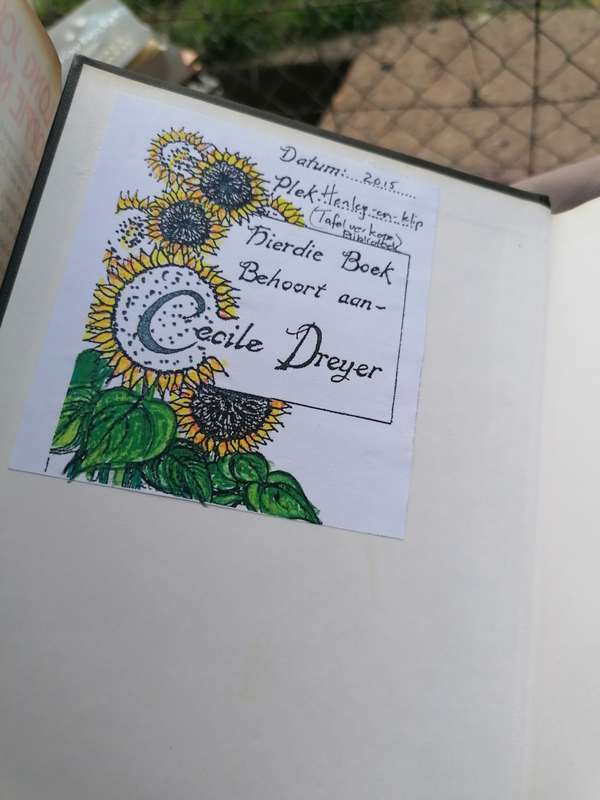 Datum:....2015......
Plek:Henley-on-klip
(Tafel verkope)
Biblioteek
Hierdie Boek
Behoort aan-
Cecile Dreyer